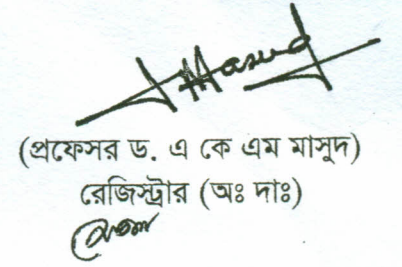 Masud
(প্রফেসর ড. এ কে এম মাসুদ)
রেজিস্ট্রার (অঃ দাঃ)